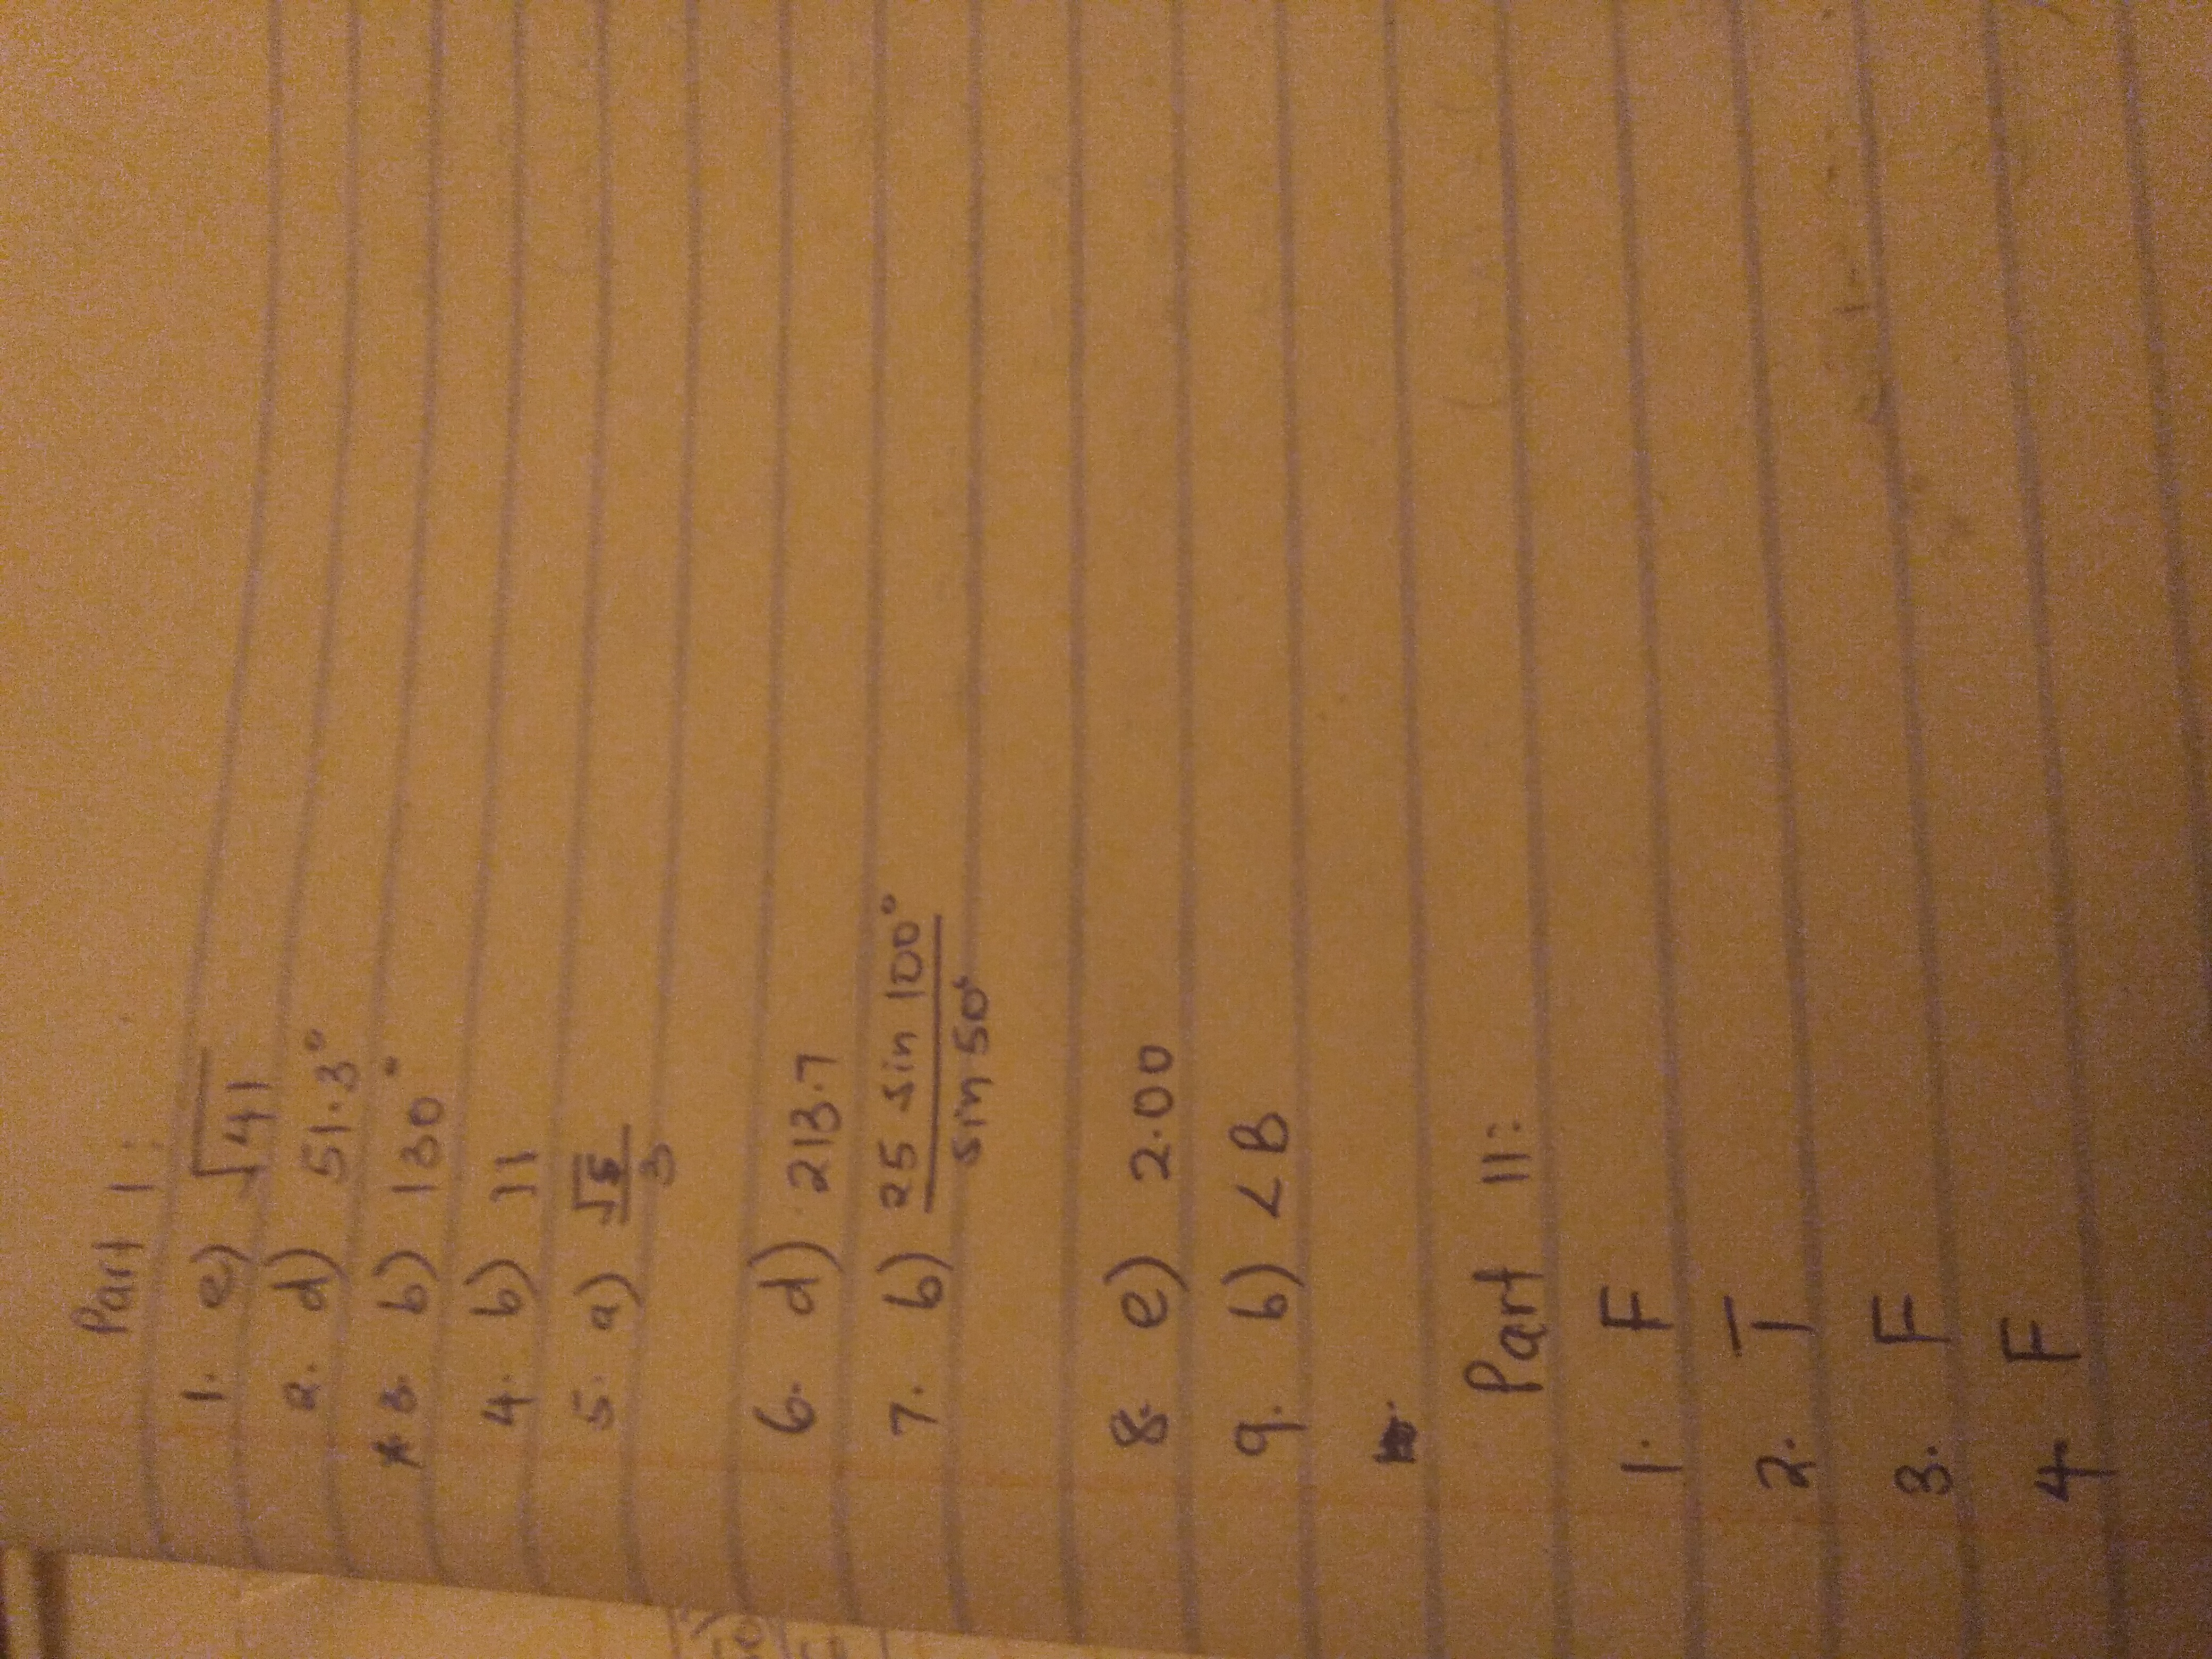 Part 1:
1. e) √41
2. d) 51.3°
* 3. b) 130°
4. b) 11
5. a) √5/3
6. d) 213.7
7. b) 25 sin 100° / sin 50°
8. e) 2.00
9. b) <B
Part 11:
1. F
2. T
3. F
4. F